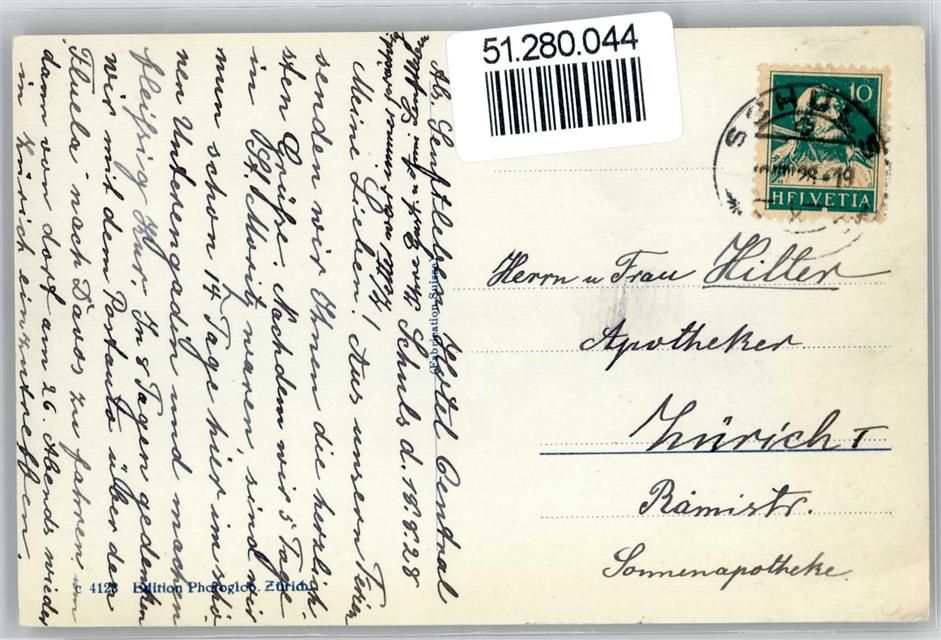 51.280.044
10
HELVETIA
SCHULS
Herrn u Frau Hilter
Apotheker
Zürich I
Rämistr.
Sonnenapotheke.
Abs. Senftleben Hotel Central
Schuls d. 18.8.28
Meine Lieben! Aus unsern Ferien
senden wir Ihnen die herzlich-
sten Grüße. Nachdem wir 5 Tage
in St. Moritz waren, sind wir
nun schon 14 Tage hier im schö-
nen Unterengadin und machen
fleißig Kur. In 8 Tagen gedenken
wir mit dem Postauto über den
Fluela nach Davos zu fahren um
dann von dort am 26. Abends wieder
in Zürich einzutreffen.
(Fabrication Suisse)
c 4128 Edition Photoglob. Zürich.